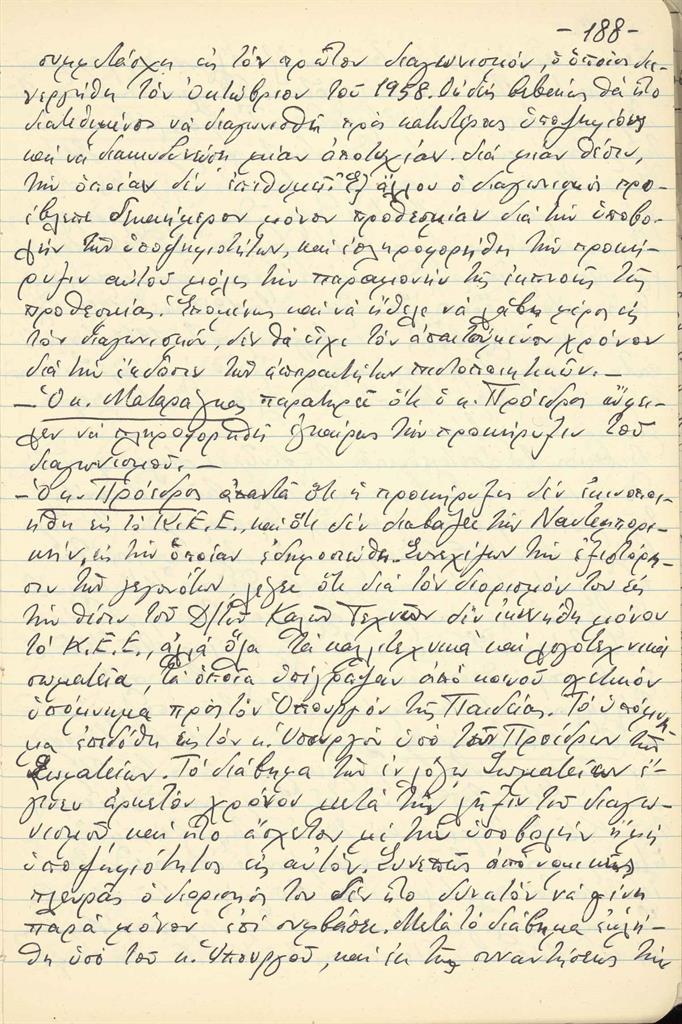 -188-
συμμετάσχῃ εἰς τὸν πρῶτον διαγωνισμόν, ὁ ὁποῖος διε-
νεργήθη τὸν Ὀκτώβριον τοῦ 1958. Οὐδεὶς βεβαίως θὰ ἦτο
διατεθειμένος νὰ διαγωνισθῇ πρὸς κατωτέρους ὑποψηφίους
καὶ νὰ διακινδυνεύσῃ μίαν ἀποτυχίαν διὰ μίαν θέσιν,
τὴν ὁποίαν δὲν ἐπιθυμεῖ. Ἐξ ἄλλου ὁ διαγωνισμὸς προ-
έβλεπε δεκαήμερον μόνον προθεσμίαν διὰ τὴν ὑποβο-
λὴν τῶν ὑποψηφιοτήτων, καὶ ἐπληροφορήθη τὴν προκή-
ρυξιν αὐτοῦ μόλις τὴν παραμονὴν τῆς ἐκπνοῆς τῆς
προθεσμίας. Ἑπομένως καὶ νὰ ἤθελε νὰ λάβῃ μέρος εἰς
τὸν διαγωνισμόν, δὲν θὰ εἶχε τὸν ἀπαιτούμενον χρόνον
διὰ τὴν ἔκδοσιν τῶν ἀπαραιτήτων πιστοποιητικῶν.-
- Ὁ κ. Ματαράγκας παρατηρεῖ ὅτι ὁ κ. Πρόεδρος ὤφει-
λεν νὰ πληροφορηθῇ ἐγκαίρως τὴν προκήρυξιν τοῦ
διαγωνισμοῦ.-
- Ὁ κ. Πρόεδρος ἀπαντᾶ ὅτι ἡ προκήρυξις δὲν ἐκοινοποι-
ήθη εἰς τὸ Κ.Ε.Ε., καὶ ὅτι δὲν διαβάζει τὴν Ναυτεμπορι-
κήν, εἰς τὴν ὁποίαν ἐδημοσιεύθη. Συνεχίζων τὴν ἐξιστόρη-
σιν τῶν γεγονότων, λέγει ὅτι διὰ τὸν διορισμόν του εἰς
τὴν θέσιν τοῦ Δ/τοῦ Καλῶν Τεχνῶν δὲν ἐκινήθη μόνον
τὸ Κ.Ε.Ε., ἀλλὰ ὅλα τὰ καλλιτεχνικὰ καὶ λογοτεχνικὰ
σωματεῖα, τὰ ὁποῖα ὑπέγραψαν ἀπὸ κοινοῦ σχετικὸν
ὑπόμνημα πρὸς τὸν Ὑπουργὸν τῆς Παιδείας. Τὸ ὑπόμνη-
μα ἐπεδόθη εἰς τὸν κ. Ὑπουργὸν ὑπὸ τῶν Προέδρων τῶν
Σωματείων. Τὸ διάβημα τῶν ἐν λόγῳ Σωματείων ἔ-
γινεν ἀρκετὸν χρόνον μετὰ τὴν λῆξιν τοῦ διαγω-
νισμοῦ καὶ ἦτο ἄσχετον μὲ τὴν ὑποβολὴν ἢ μὴ
ὑποψηφιότητος εἰς αὐτόν. Συνεπῶς ἀπὸ νομικῆς
πλευρᾶς ὁ διορισμός του δὲν ἦτο δυνατὸν νὰ γίνῃ
παρὰ μόνον ἐπὶ συμβάσει. Μετὰ τὸ διάβημα ἐκλή-
θη ὑπὸ τοῦ κ. Ὑπουργοῦ, καὶ ἐκ τῆς συναντήσεως τὴν